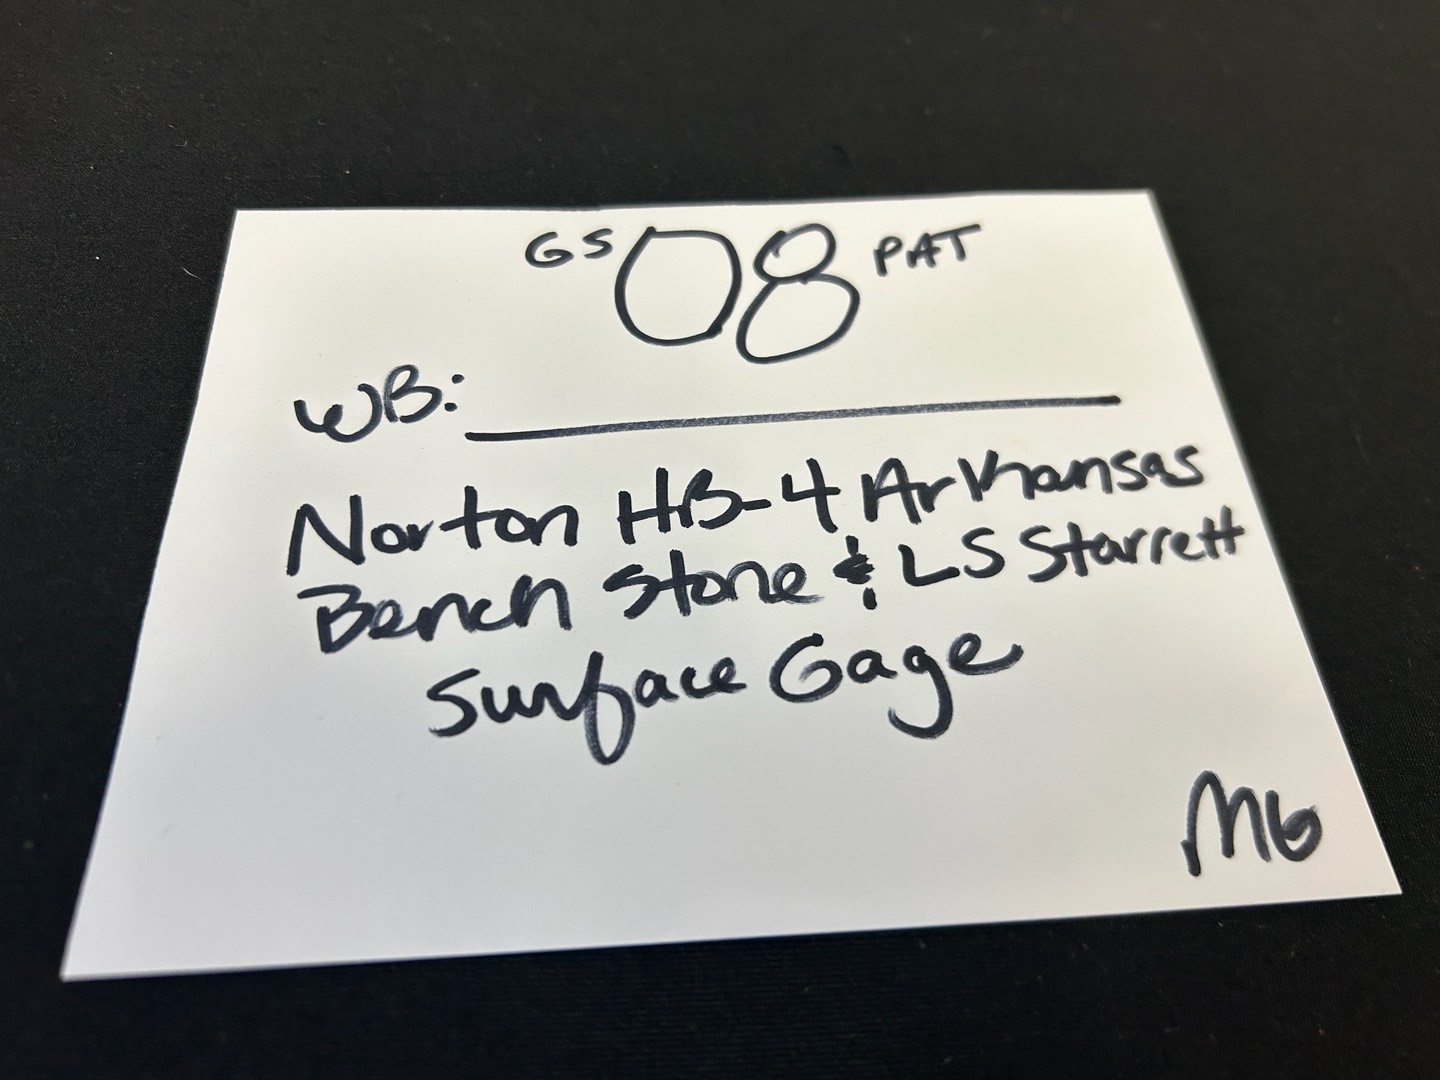 GS 08 PAT
WB:
Norton HB-4 Arkansas
Bench Stone & LS Starrett
Surface Gage
MG